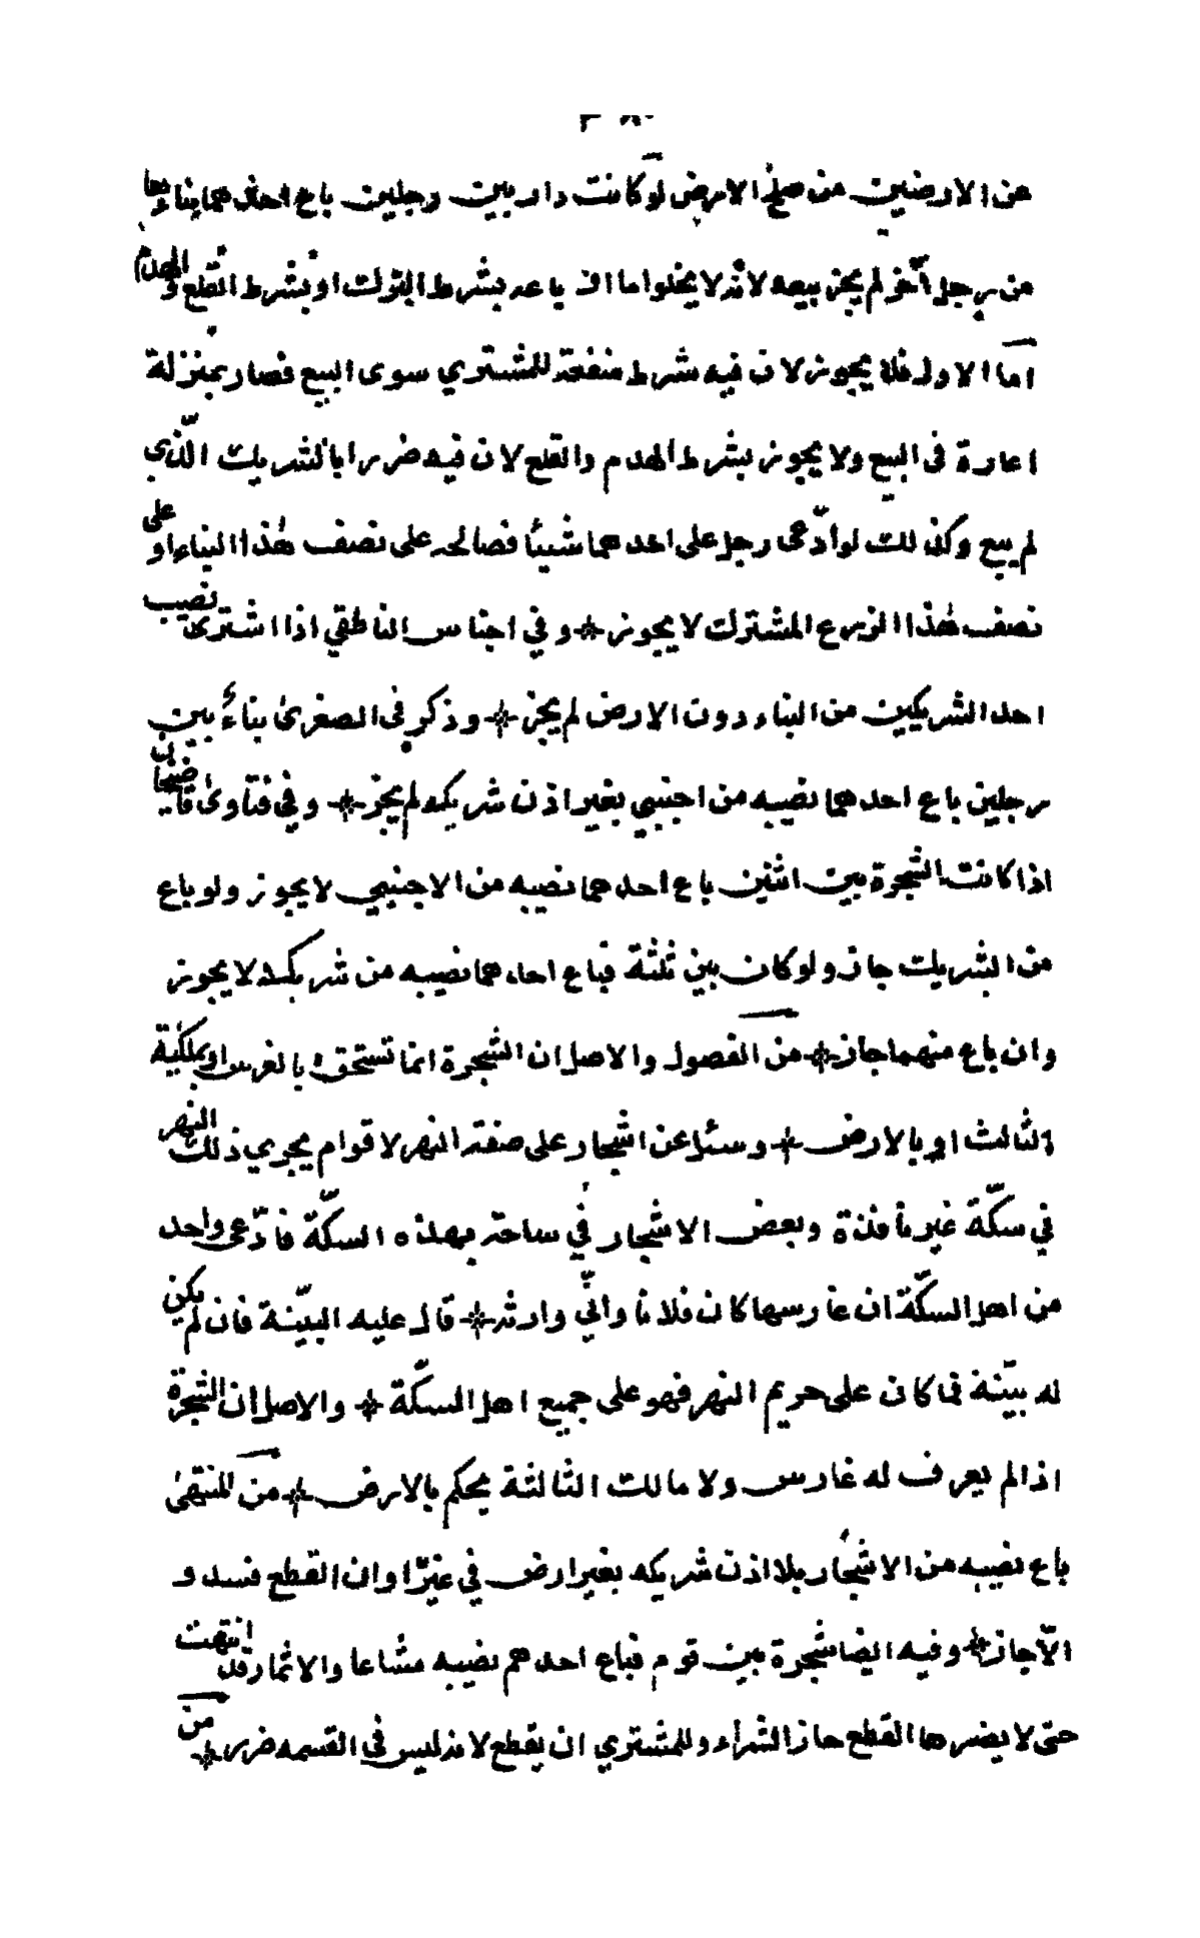 من الارضين من صلح الارض لو كانت دار بين رجلين باع احدهما بناءها
من رجل آخر لم يجز بيعه لانه لا يخلوا اما ان باعه بشرط الترك او بشرط القلع والهدم
اما الاول فلا يجوز لان فيه شرط منفعة للمشتري سوى البيع فصار بمنزلة
اعارة في البيع ولا يجوز بشرط الهدم والقلع لان فيه ضررا بالشريك الّذي
لم يبع وكذلك لو ادّعى رجل على احدهما شيئا فصالحه على نصف هذا البناء او على
نصف هذا الزرع المشترك لا يجوز * وفي اجناس الناطفي اذا اشترى نصيب
احد الشريكين من البناء دون الارض لم يجز * وذكر في الصغرى بناء بين
رجلين باع احدهما نصيبه من اجنبي بغير اذن شريكه لم يجز * وفي فتاوى قاضيخان
اذا كانت الشجرة بين اثنين باع احدهما نصيبه من الاجنبي لا يجوز ولو باع
من الشريك جاز ولو كان بين ثلثة فباع احدهما نصيبه من شريكه لا يجوز
وان باع منهما جاز * من الفصول والاصل ان الشجرة انما تستحق بالغرس او بملكية
الثالث او بالارض * وسئل عن اشجار على ضفة النهر لاقوام يجري ذلك النهر
في سكّة غير نافذة وبعض الاشجار في ساحة بهذه السكّة فادّعى واحد
من اهل السكّة ان غارسها كان فلانا وانّي وارثه * قال عليه البيّنة فان لم يكن
له بيّنة فما كان على حريم النهر فهو على جميع اهل السكّة * والاصل ان الشجرة
اذا لم يعرف له غارس ولا مالك الثالثة يحكم بالارض * من المنتقى
باع نصيبه من الاشجار بلا اذن شريكه بغير ارض في وان القطع فسد و
الّا جاز * وفيه ايضا شجرة بين قوم فباع احدهم نصيبه مشاعا والاثمار قد انتهت
حتى لا يضرها القطع جاز الشراء وللمشتري ان يقطع لانه ليس في القسمه ضرر * من